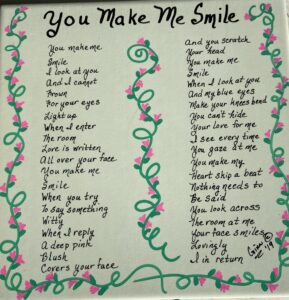 You Make Me Smile
You make me
Smile
I look at you
And I cannot
Frown
For your eyes
Light up
When I enter
The room
Love is written
All over your face
You make me
Smile
When you try
To say something
Witty
When I reply
A deep pink
Blush
Covers your face
And you scratch
Your head
You make me
Smile
When I look at you
And my blue eyes
Make your knees bend
You can't hide
Your love for me
I see every time
You gaze at me
You make my
Heart skip a beat
Nothing needs to
Be said
You look across
The room at me
Your face smiles
Lovingly
I in return
© '19